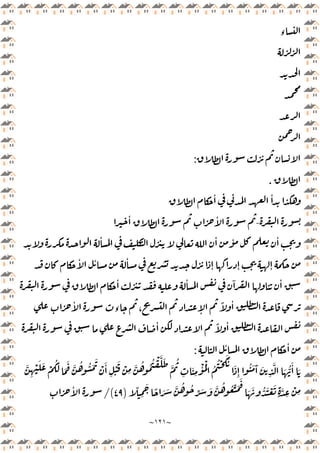 النساء
الزلزلة
الحديد
محمد
الرعد
الرحمن
الانسان ثم نزلت سورة الطلاق:
الطلاق .
وهكذا بدأ العهد المدني في أحكام الطلاق
بسورة البقرة. ثم سورة الأحزاب ثم سورة الطلاق أخيرا
ويجب أن يعلم كل مؤمن ان الله تعالى لا ينزل التكليف في المسألة الواحدة مكررة ولابد
من حكمة إلهية يجب إدراكها إذا نزل جديد تشريع في مسألة من مسائل الأحكام كان قد
سبق أن تناولها القرآن في نفس المسألة وعليه فقد نزلت أحكام الطلاق في سورة البقرة
ترسي قاعدة التطليق أولاً ثم الاعتداد ثم التسريح، ثم جاءت سورة الأحزاب علي
نفس القاعدة التطليق أولاً ثم الاعتداد لكن أضاف الشرع علي ما سبق في سورة البقرة
من أحكام الطلاق المسائل التالية:
يَا أَيُّهَا الَّذِينَ آمَنُوا إِذَا نَكَحْتُمُ الْمُؤْمِنَاتِ ثُمَّ طَلَّقْتُمُوهُنَّ مِنْ قَبْلِ أَنْ تَمَسُّوهُنَّ فَمَا لَكُمْ عَلَيْهِنَّ
مِنْ عِدَّةٍ تَعْتَدُّونَهَا فَمَتِّعُوهُنَّ وَسَرِّحُوهُنَّ سَرَاحًا جَمِيلًا (٤٩) / سورة الأحزاب
~١٢١~